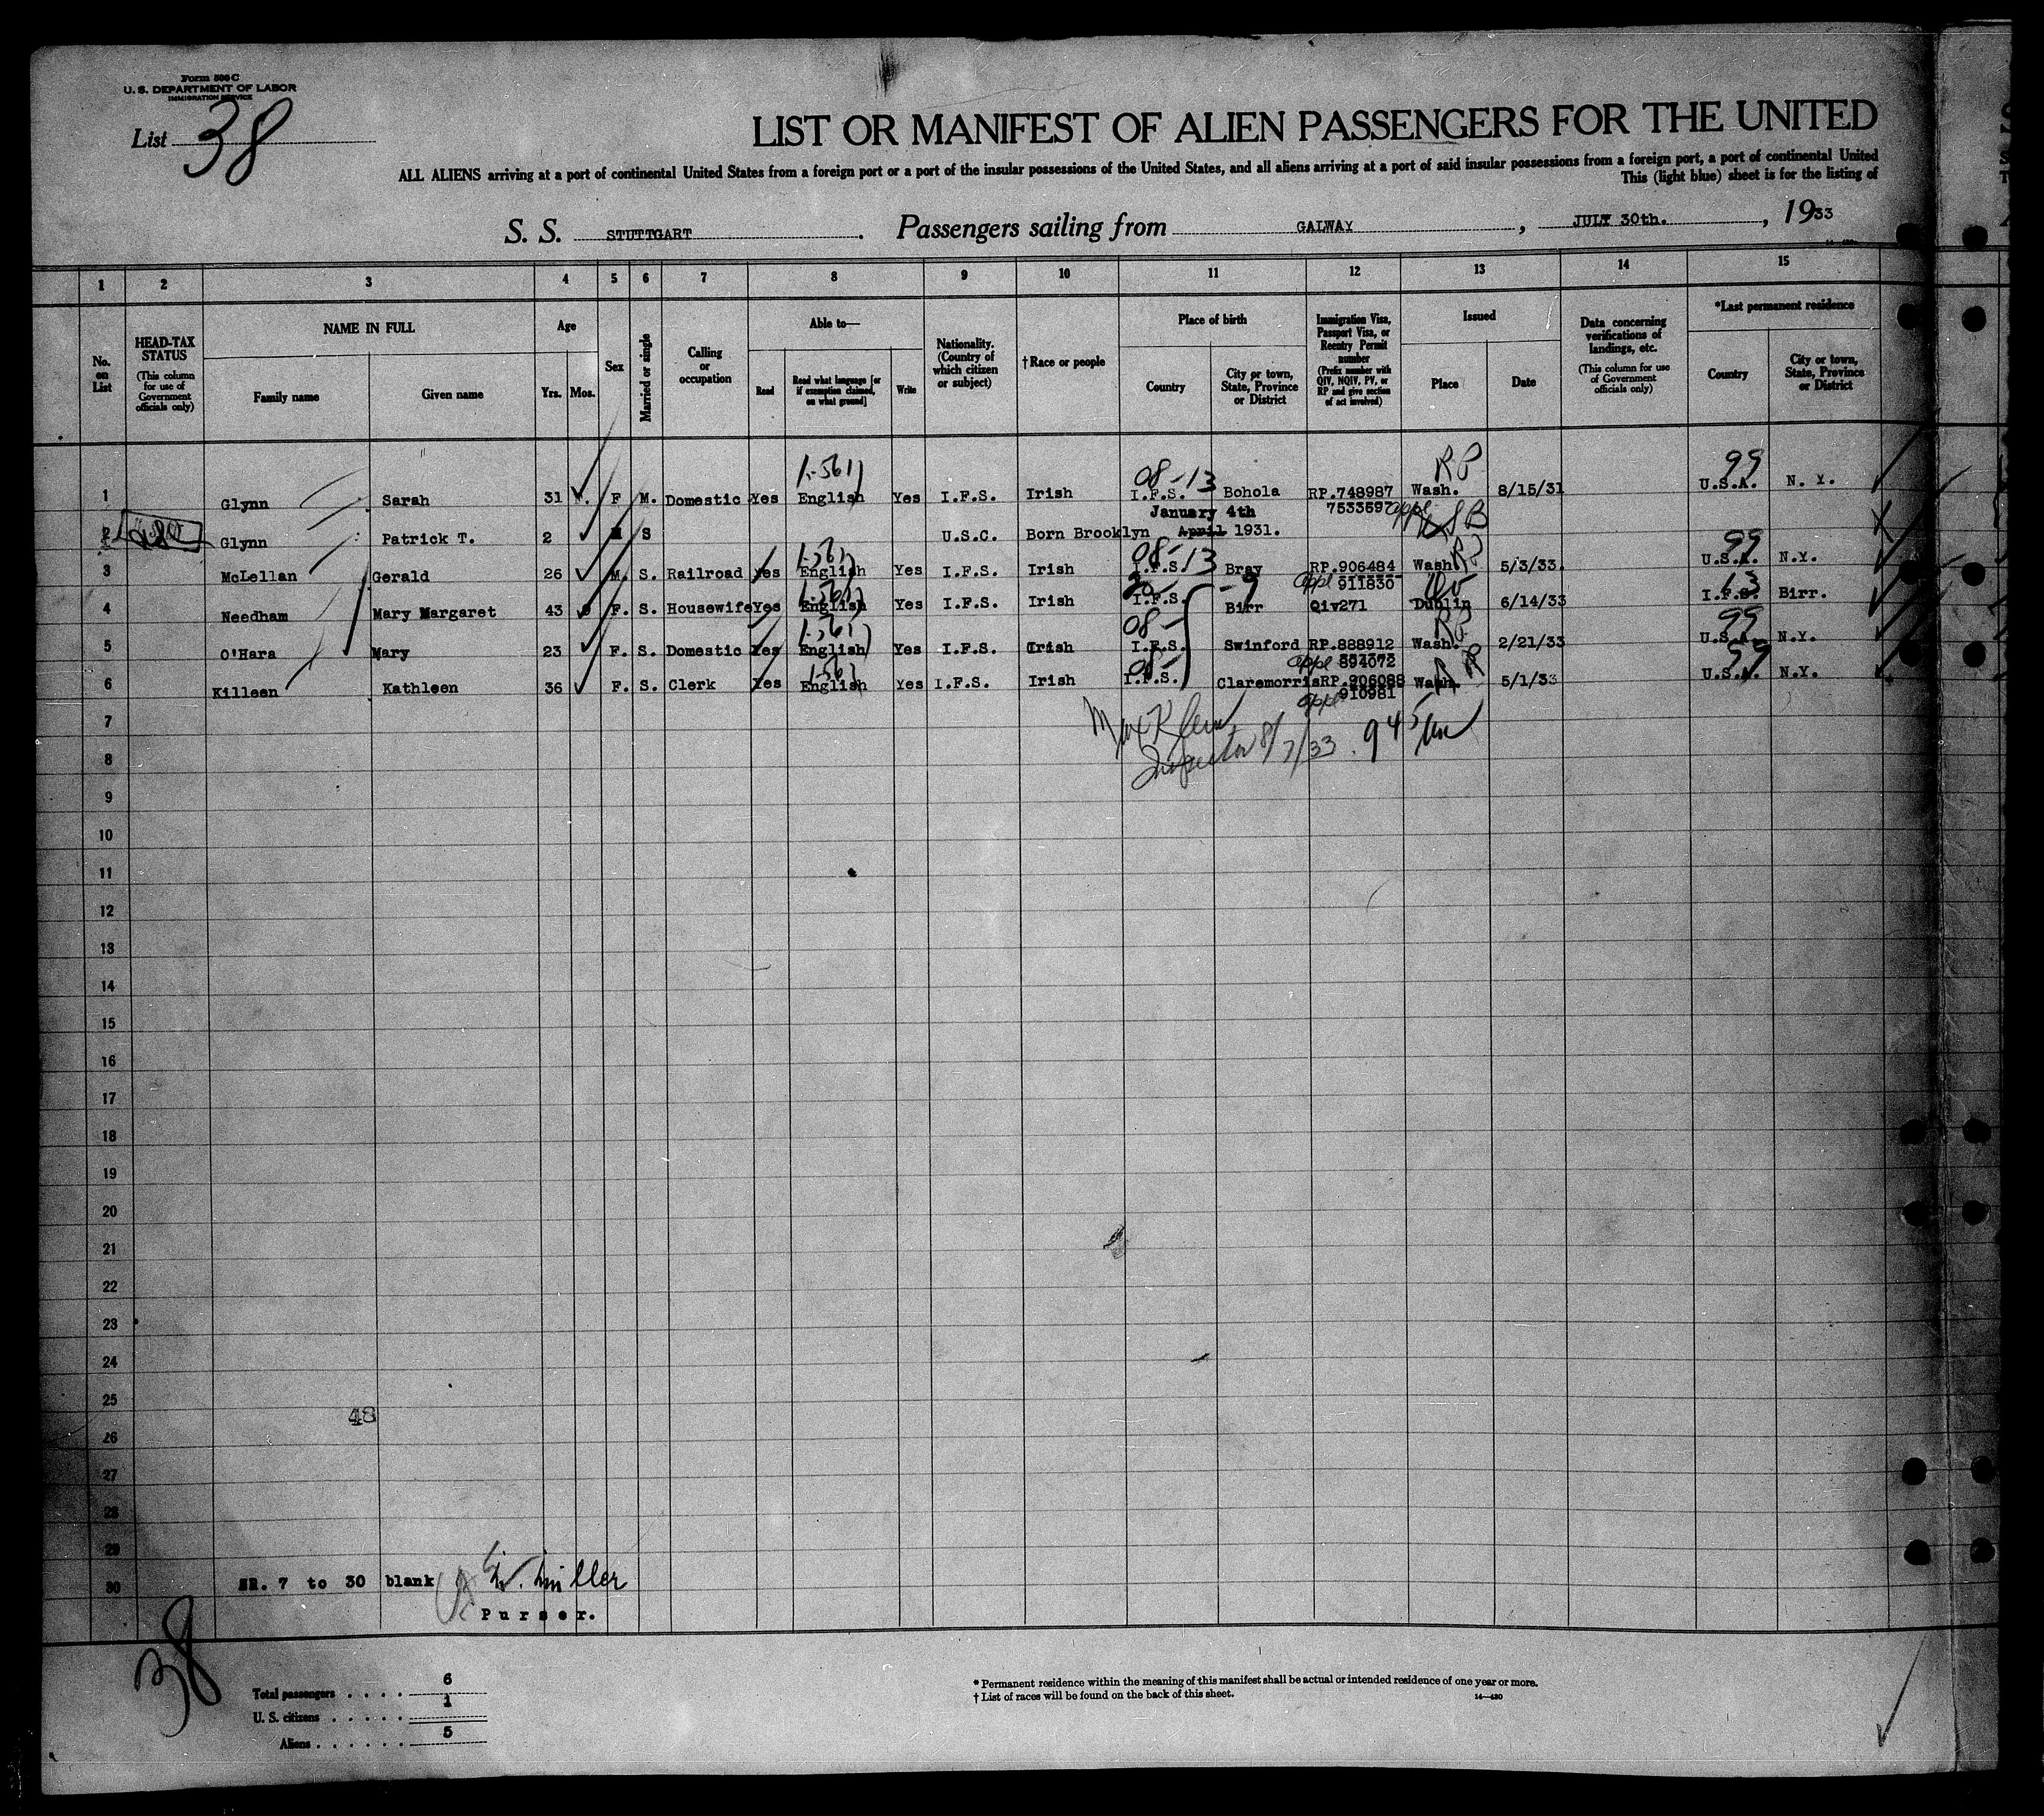 Form 500 C
U. S. DEPARTMENT OF LABOR
IMMIGRATION SERVICE
List 38
LIST OR MANIFEST OF ALIEN PASSENGERS FOR THE UNITED
ALL ALIENS arriving at a port of continental United States from a foreign port or a port of the insular possessions of the United States, and all aliens arriving at a port of said insular possessions from a foreign port, a port of continental United
This (light blue) sheet is for the listing of
S. S. STUTTGART. Passengers sailing from GALWAY, JULY 30th., 1933
1 2 3 4 5 6 7 8 9 10 11 12 13 14 15
No. on List
HEAD-TAX STATUS
(This column for use of Government officials only)
NAME IN FULL
Family name
Given name
Age
Yrs. Mos.
Sex
Married or single
Calling or occupation
Able to—
Read
Read what language [or if exemption claimed, on what ground]
Write
Nationality. (Country of which citizen or subject)
†Race or people
Place of birth
Country
City or town, State, Province or District
Immigration Visa, Passport Visa, or Reentry Permit number
(Prefix number with QIV, NQIV, PV, or RP and give section of act involved)
Issued
Place
Date
Data concerning verifications of landings, etc.
(This column for use of Government officials only)
*Last permanent residence
Country
City or town, State, Province or District
1-561 08-13 RP 99
1 Glynn Sarah 31 F M. Domestic Yes English Yes I.F.S. Irish I.F.S. Bohola RP.748987 Wash. 8/15/31 U.S.A. N. Y.
January 4th 753359 appl
2 Glynn Patrick T. 2 M S U.S.C. Born Brooklyn April 1931. USB
1-561 08-13 RP 99
3 McLellan Gerald 26 M. S. Railroad Yes English Yes I.F.S. Irish I.F.S. Bray RP.906484 Wash. 5/3/33 U.S.A. N.Y.
appl 911830
1-561 -9 13
4 Needham Mary Margaret 43 F. S. Housewife Yes English Yes I.F.S. Irish I.F.S. Birr Qiv271 Dublin 6/14/33 I.F.S. Birr.
1-561 08- RP 99
5 O'Hara Mary 23 F. S. Domestic Yes English Yes I.F.S. Irish I.F.S. Swinford RP.888912 Wash. 2/21/33 U.S.A. N.Y.
appl 894072
1-561 08- RP 99
6 Killeen Kathleen 36 F. S. Clerk Yes English Yes I.F.S. Irish I.F.S. Claremorris RP.906088 Wash. 5/1/33 U.S.A. N.Y.
appl 910981
7
Max Klein
Inspector 8/7/33. 9 45
8
9
10
11
12
13
14
15
16
17
18
19
20
21
22
23
24
25
48
26
27
28
29
30 NR. 7 to 30 blank
Müller
Purser.
38
Total passengers . . . . 6
U. S. citizens . . . . . 1
Aliens . . . . . . 5
* Permanent residence within the meaning of this manifest shall be actual or intended residence of one year or more.
† List of races will be found on the back of this sheet.
14—430